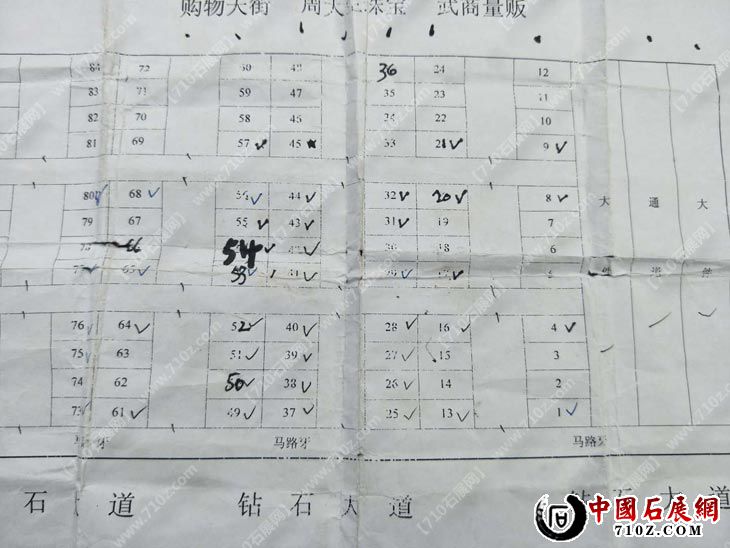 购物大街 周大 珠宝 武商量贩
84 72 60 48 36 24 12
83 71 59 47 35 23 11
82 70 58 46 34 22 10
81 69 57 ✓ 45 33 21 ✓ 9 ✓
80 ✓ 68 ✓ 56 ✓ 44 ✓ 32 ✓ 20 ✓ 8 ✓ 大 通 大
79 67 55 ✓ 43 ✓ 31 ✓ 19 7
66 54 ✓ 42 ✓ 30 18 6
65 ✓ 53 ✓ 41 ✓ 29 ✓ 17 ✓ 件 道 件
76 ✓ 64 ✓ 52 ✓ 40 ✓ 28 ✓ 16 ✓ 4 ✓
75 ✓ 63 51 ✓ 39 ✓ 27 ✓ 15 3
74 62 50 ✓ 38 ✓ 26 ✓ 14 2
73 ✓ 61 ✓ 49 ✓ 37 ✓ 25 ✓ 13 ✓ 1 ✓
马 牙 马路牙 马路牙
石 大 道 钻 石 大 道 钻 石 大 道
中國石展網
710Z.COM
【710石展网】
www.710z.com